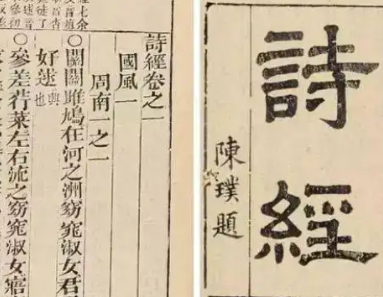 詩經
陳璞題
詩經卷之一
國風一
周南一之一
○關關雎鳩在河之洲窈窕淑女君
好逑
○參差荇菜左右流之窈窕淑女寤